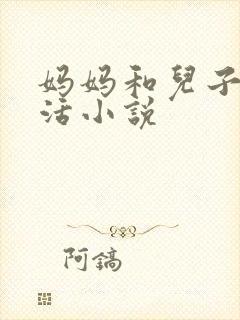 妈妈和兒子
活小説
阿鎬